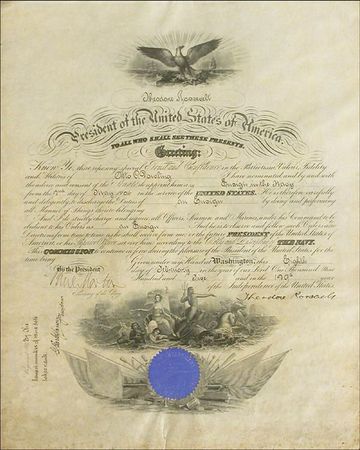 Theodore Roosevelt
President of the United States of America,
TO ALL WHO SHALL SEE THESE PRESENTS,
Greeting:
Know Ye, that reposing special Trust and Confidence in the Patriotism, Valor, Fidelity
and Abilities of Otto C. I have nominated and by and with
the advice and consent of the Senate do appoint him an Ensign in the Navy
from the day of in the service of the UNITED STATES. He is therefore carefully
and diligently to discharge the duties of an Ensign by doing and performing
all Manner of things thereto belonging.
And I do strictly charge and require all Officers, Seamen and Marines, under his Command to be
obedient to his Orders as an Ensign And he is to observe and follow such Orders and
Directions from time to time as he shall receive from me or the future PRESIDENT of the United States of
America, or his Superior Officer set over him, according to the Rules and Discipline of THE NAVY.
This COMMISSION to continue in force during the pleasure of the President of the United States for the
time being.
Given under my Hand at Washington, this Eighth
day of February in the year of our Lord One Thousand Nine
Hundred and Five and in the 129th year
of the Independence of the United States.
By the President:
Theodore Roosevelt
Secretary of the Navy.